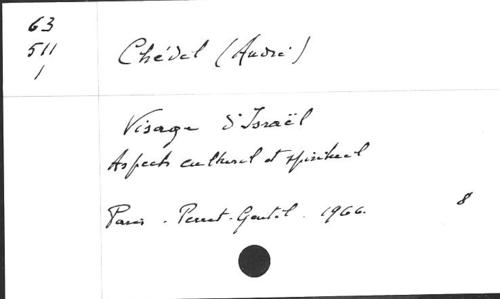 63
511
1
Chédel (André)
Visage d'Israël
Aspects culturel et spirituel
Paris. Perret-Gentil. 1966.
8